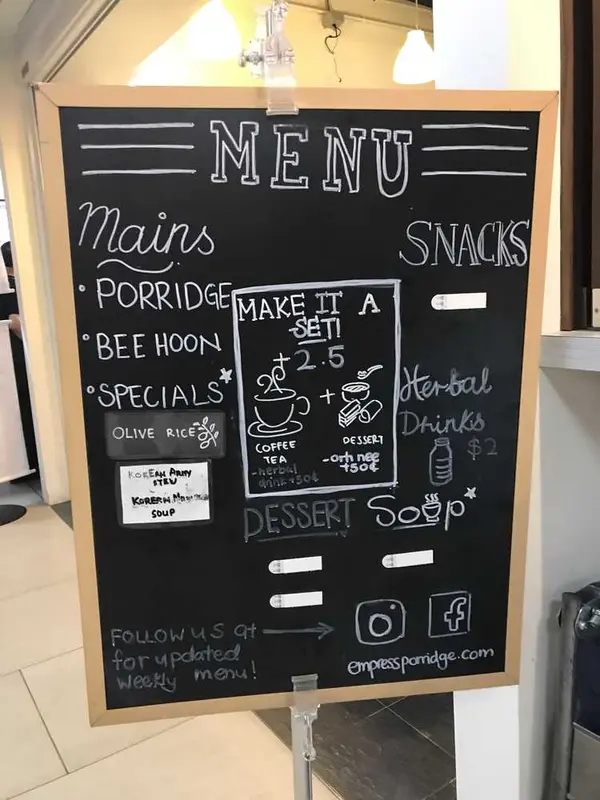 MENU
Mains
• PORRIDGE
• BEE HOON
• SPECIALS
OLIVE RICE
KOREAN ARMY
STEW
SOUP
MAKE IT A
SET!
+2.5
+
COFFEE
TEA
-herbal
drink +50¢
DESSERT
-orh nee
+50¢
SNACKS
Herbal
Drinks
$2
DESSERT
Soup
FOLLOW US at
for updated
weekly menu!
empressporridge.com